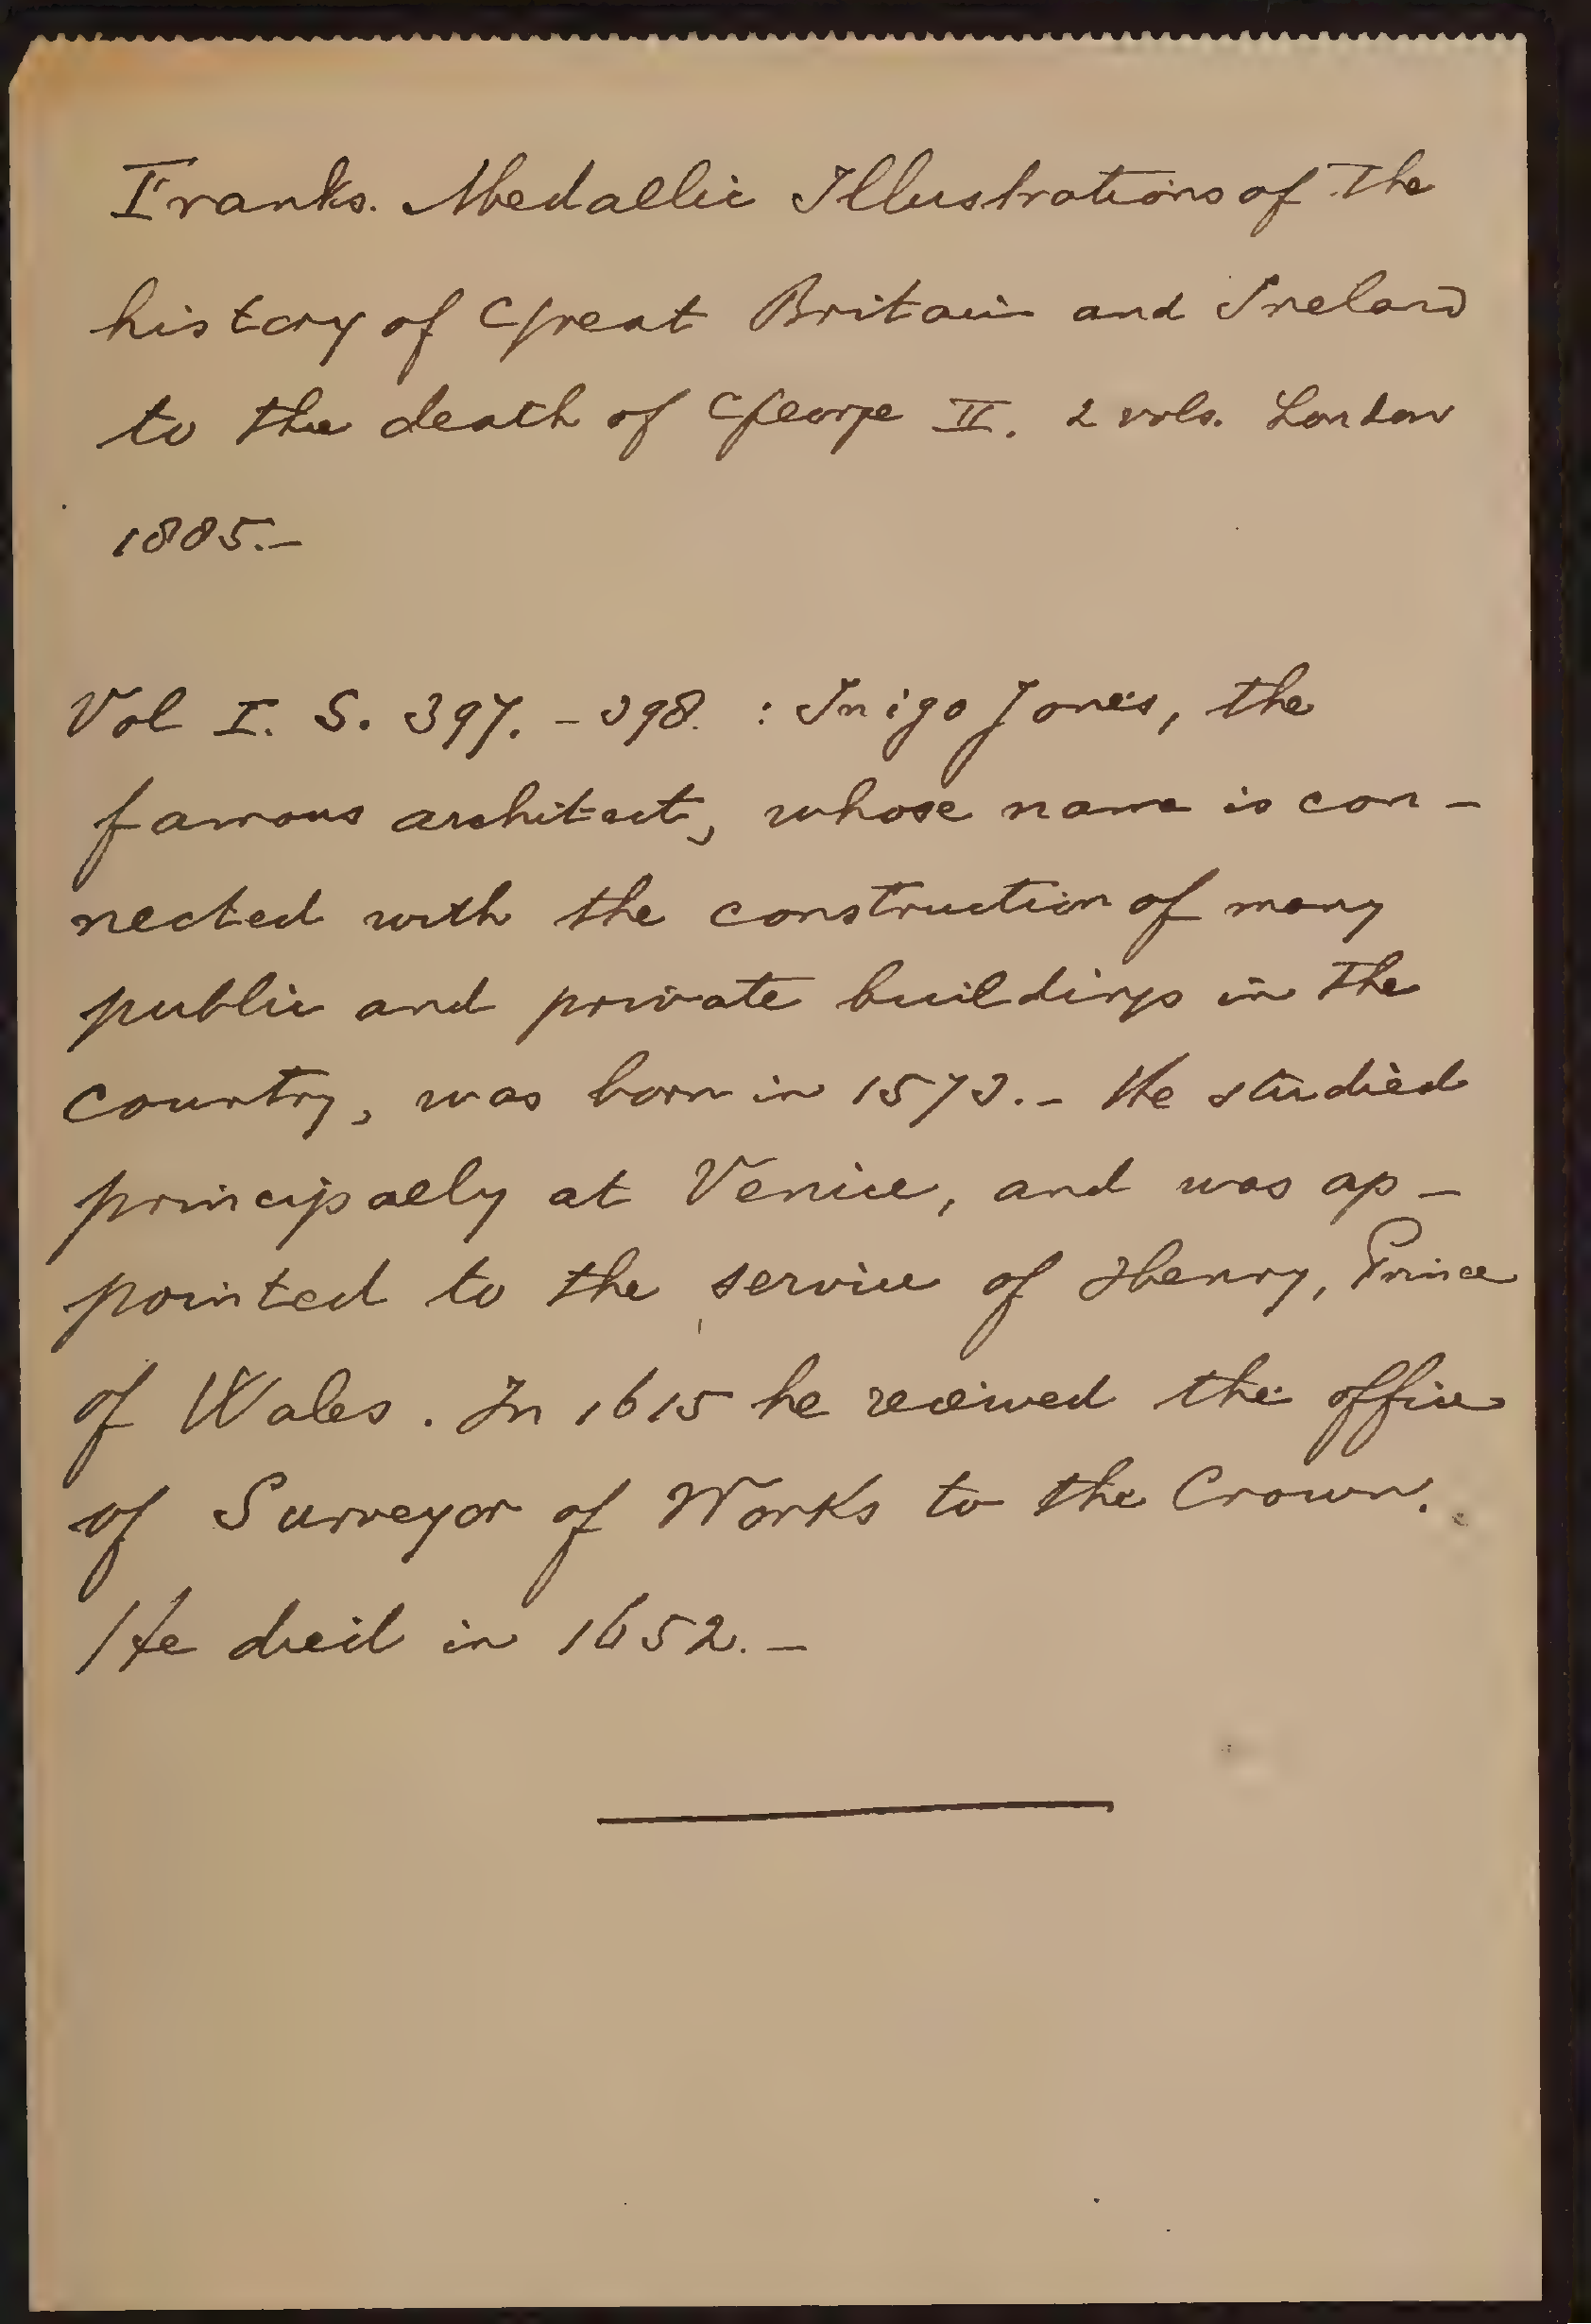 Franks. Medallic Illustrations of the
history of Great Britain and Ireland
to the death of George II. 2 vols. London
1885.-
Vol I. S. 397. - 398. : Inigo Jones, the
famous architect, whose name is con-
nected with the construction of many
public and private buildings in the
country, was born in 1573.- He studied
principally at Venice, and was ap-
pointed to the service of Henry, Prince
of Wales. In 1615 he received the office
of Surveyor of Works to the Crown.
He died in 1652.-